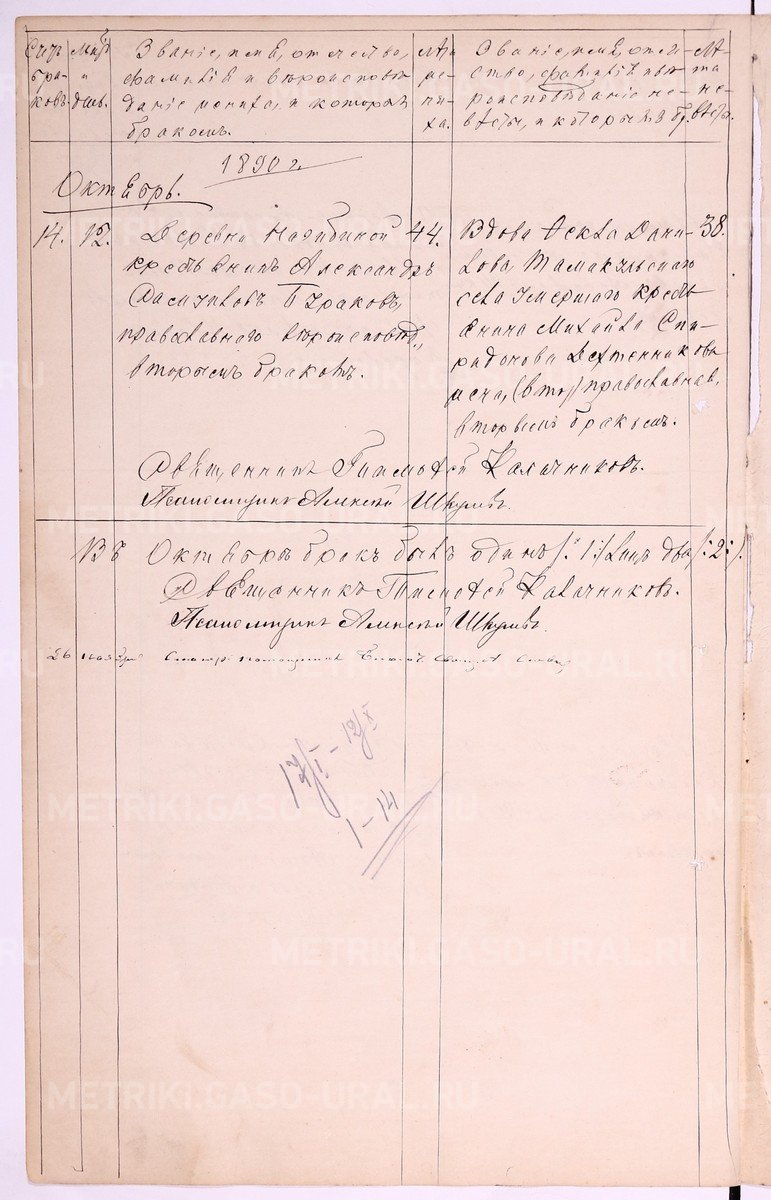 Счетъ браковъ.
Мѣсяцъ и день.
Званіе, имя, отчество,
фамилія и вѣроисповѣ-
даніе жениха, и которымъ
бракомъ.
Лѣта жениха.
Званіе, имя, отче-
ство, фамилія и вѣ-
роисповѣданіе не-
вѣсты, и которымъ бр.
Лѣта невѣсты.
1890 г.
Октябрь.
14.
12.
Деревни
крестьянинъ Александръ
православнаго вѣроисповѣд.,
вторымъ бракомъ.
44.
Вдова Ѳекла Дани-
лова, Тамакульскаго
села умершаго кресть-
янина Михаила Спи-
ридонова
жена, православная,
вторымъ бракомъ.
38.
Священникъ Тимоѳей Калачниковъ.
Псаломщикъ Алексѣй
Въ Октябрѣ бракъ былъ одинъ /:1:/ Лицъ два /:2:/.
Священникъ Тимоѳей Калачниковъ.
Псаломщикъ Алексѣй
26 ноября
12/I – 12/X
1–14
METRIKI.GASO-URAL.RU